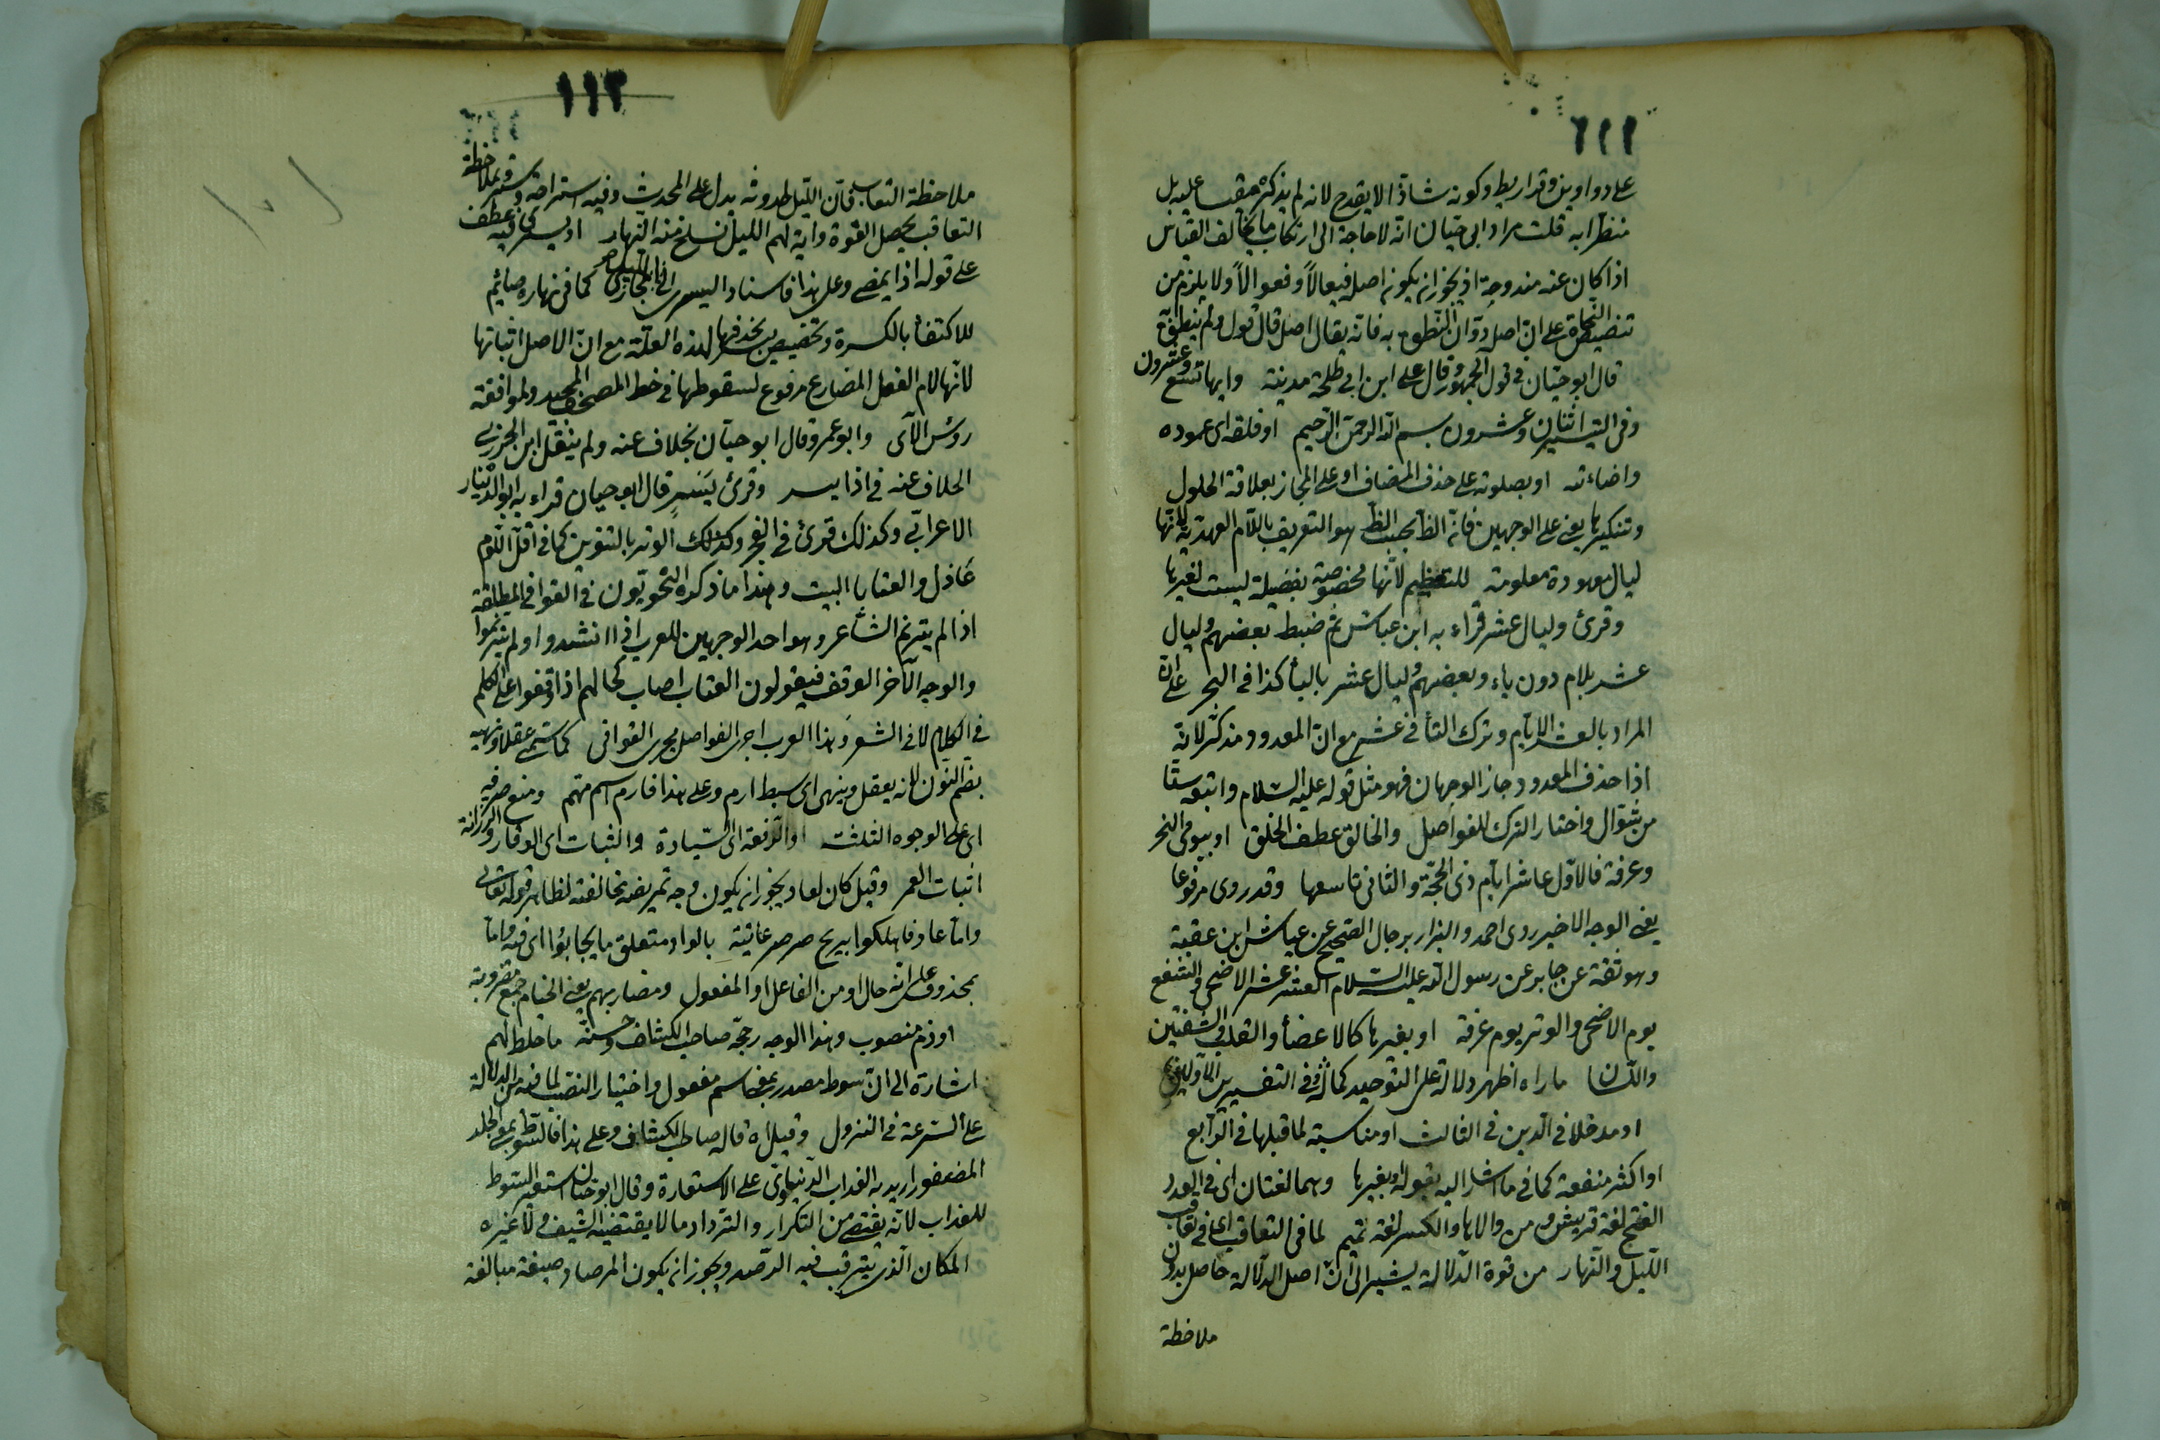 ١١٢
على دواوين وقراريط وكونه شاذا لا يقدح لانه لم يذكره مقيسا عليه بل
منظرا به قلت مراد ابى حيان انه لا حاجة الى ارتكاب ما يخالف القياس
اذا كان عنه مندوحة اذ يجوز ان يكون اصله فيعالا وفعوالا ولا يلزم من
تنصيص النحاة على ان اصل دوان النطق به فانه يقال اصل قال قول ولم ينطق به
قال ابو حيان فى قول الجمهور وقال على ابن ابى طلحة مدينة وايها تسع وعشرون
وفى التيسير اثنان وعشرون بسم الله الرحمن الرحيم او فلقه اى عموده
واضاءته او بصلوته على حذف المضاف او على المجاز بعلاقة الحلول
وتنكيرها يعنى على الوجهين فانه الظ بحسب الظ هو التعريف باللام العهدية لانها
ليال معهودة معلومة للتعظيم لانها مخصوصة بفضيلة ليست لغيرها
وقرئ وليال عشر قراء به ابن عباس ثم ضبط بعضهم وليال
عشر بلام دون ياء وبعضهم وليالى عشر بالياء كذا فى البحر على ان
المراد بالعشر الايام وترك التاء فى عشر مع ان المعدود مذكر لانه
اذا حذف المعدود جاز الوجهان فهو مثل قوله عليه السلام واتبعه ستا
من شوال واختار الترك للفواصل والخالق عطف الخلق او بيومى النحر
وعرفة فالاول عاشر ايام ذى الحجة والثانى تاسعها وقد روى مرفوعا
يعنى الوجه الاخير روى احمد والبزار برجال الصحيح عن عياش ابن عقبة
وهو ثقة عن جابر عن رسول الله عليه السلام العشر عشر الاضحى والشفع
يوم الاضحى والوتر يوم عرفة او بغيرها كالاعضاء والقلب والشفتين
واللسان ما راه اظهر دلالة على التوحيد كما فى التفسير
او مدخلا فى الدين فى الثالث او مناسبة لما قبلها فى الرابع
او اكثر منفعة كما فى ما اشار اليه بقوله او بغيرها وهما لغتان اى فى العدد
الفتح لغة قريش ومن والاها والكسر لغة تميم لما فى التعاقب اى فى تعاقب
الليل والنهار من قوة الدلالة يشير الى ان اصل الدلالة حاصل بدون
ملاحظة
١١٣
ملاحظة التعاقب فان الليل لحدوثه يدل على المحدث وفيه استراحة وبملاحظة
التعاقب يحصل القوة واية لهم الليل نسلخ منه النهار او يسرى فيه عطف
على قوله اذا يمضى وعلى هذا فاسناد اليسرى الى الليل مجازى كما فى نهاره صائم
للاكتفاء بالكسرة وتخصيص يسر بحذفها لهذه العلة مع ان الاصل اثباتها
لانها لام الفعل المضارع مرفوع لسقوطها فى خط المصحف المجيد ولموافقة
رؤس الآى وابو عمرو قال ابو حيان بخلاف عنه ولم ينقل ابن الجزرى
الخلاف عنه فى اذا يسر وقرئ يسر قال ابو حيان قراء به ابو الدينار
الاعرابى وكذلك قرئ فى الفجر وكذلك الوتر بالتنوين كما فى اقل اللوم
عاذل والعتابا البيت وهذا ما ذكره النحويون فى القوافى المطلقة
اذا لم يترنم الشاعر وهو احد الوجهين للعرب اذا انشدوا ولم يترنموا
والوجه الآخر الوقف فيقولون العتاب اصاب كحالهم اذا وقفوا على الكلم
فى الكلام لا فى الشعر وهذا العرب اجرى الفواصل مجرى القوافى كما سمى عقلا ونهية
بضم النون لانه يعقل وينهى اى سبط ارم وعلى هذا فارم اسم امهم ومنع صرفه
اى على الوجوه الثلثة او الرفعة اى السيادة والثبات اى الوقار والرزانة
اثبات العمر وقيل كان لعاد يجوز ان يكون وجه تمريضه مخالفته لظاهر قوله تعالى
واما عاد فاهلكوا بريح صرصر عاتية بالواد متعلق بما بجابوا اى فيه واما
بمحذوف على انه حال او من الفاعل او المفعول ومضاربهم يعنى الخيام جمع مضروبة
او ذم منصوب وهذا الوجه رجحه صاحب الكشاف وحسنه ما خلط لهم
اشارة الى ان سوط مصدر بمعنى اسم مفعول واختيار النصب لما فيه من الدلالة
على السرعة فى النزول وقيل اه قاله صاحب الكشاف وعلى هذا فالسوط بمعنى الجلد
المضفور اريد به العذاب الدنياوى على الاستعارة وقال ابو حيان استعير السوط
للعذاب لانه يقتضى من التكرار والترداد ما لا يقتضيه السيف ولا غيره
المكان الذى يترقب فيه الرصد ويجوز ان يكون المرصاد صيغة مبالغة